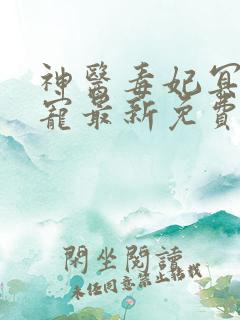 神醫毒妃冥
寵最新免費
閑坐閱讀
未经同意禁止转载